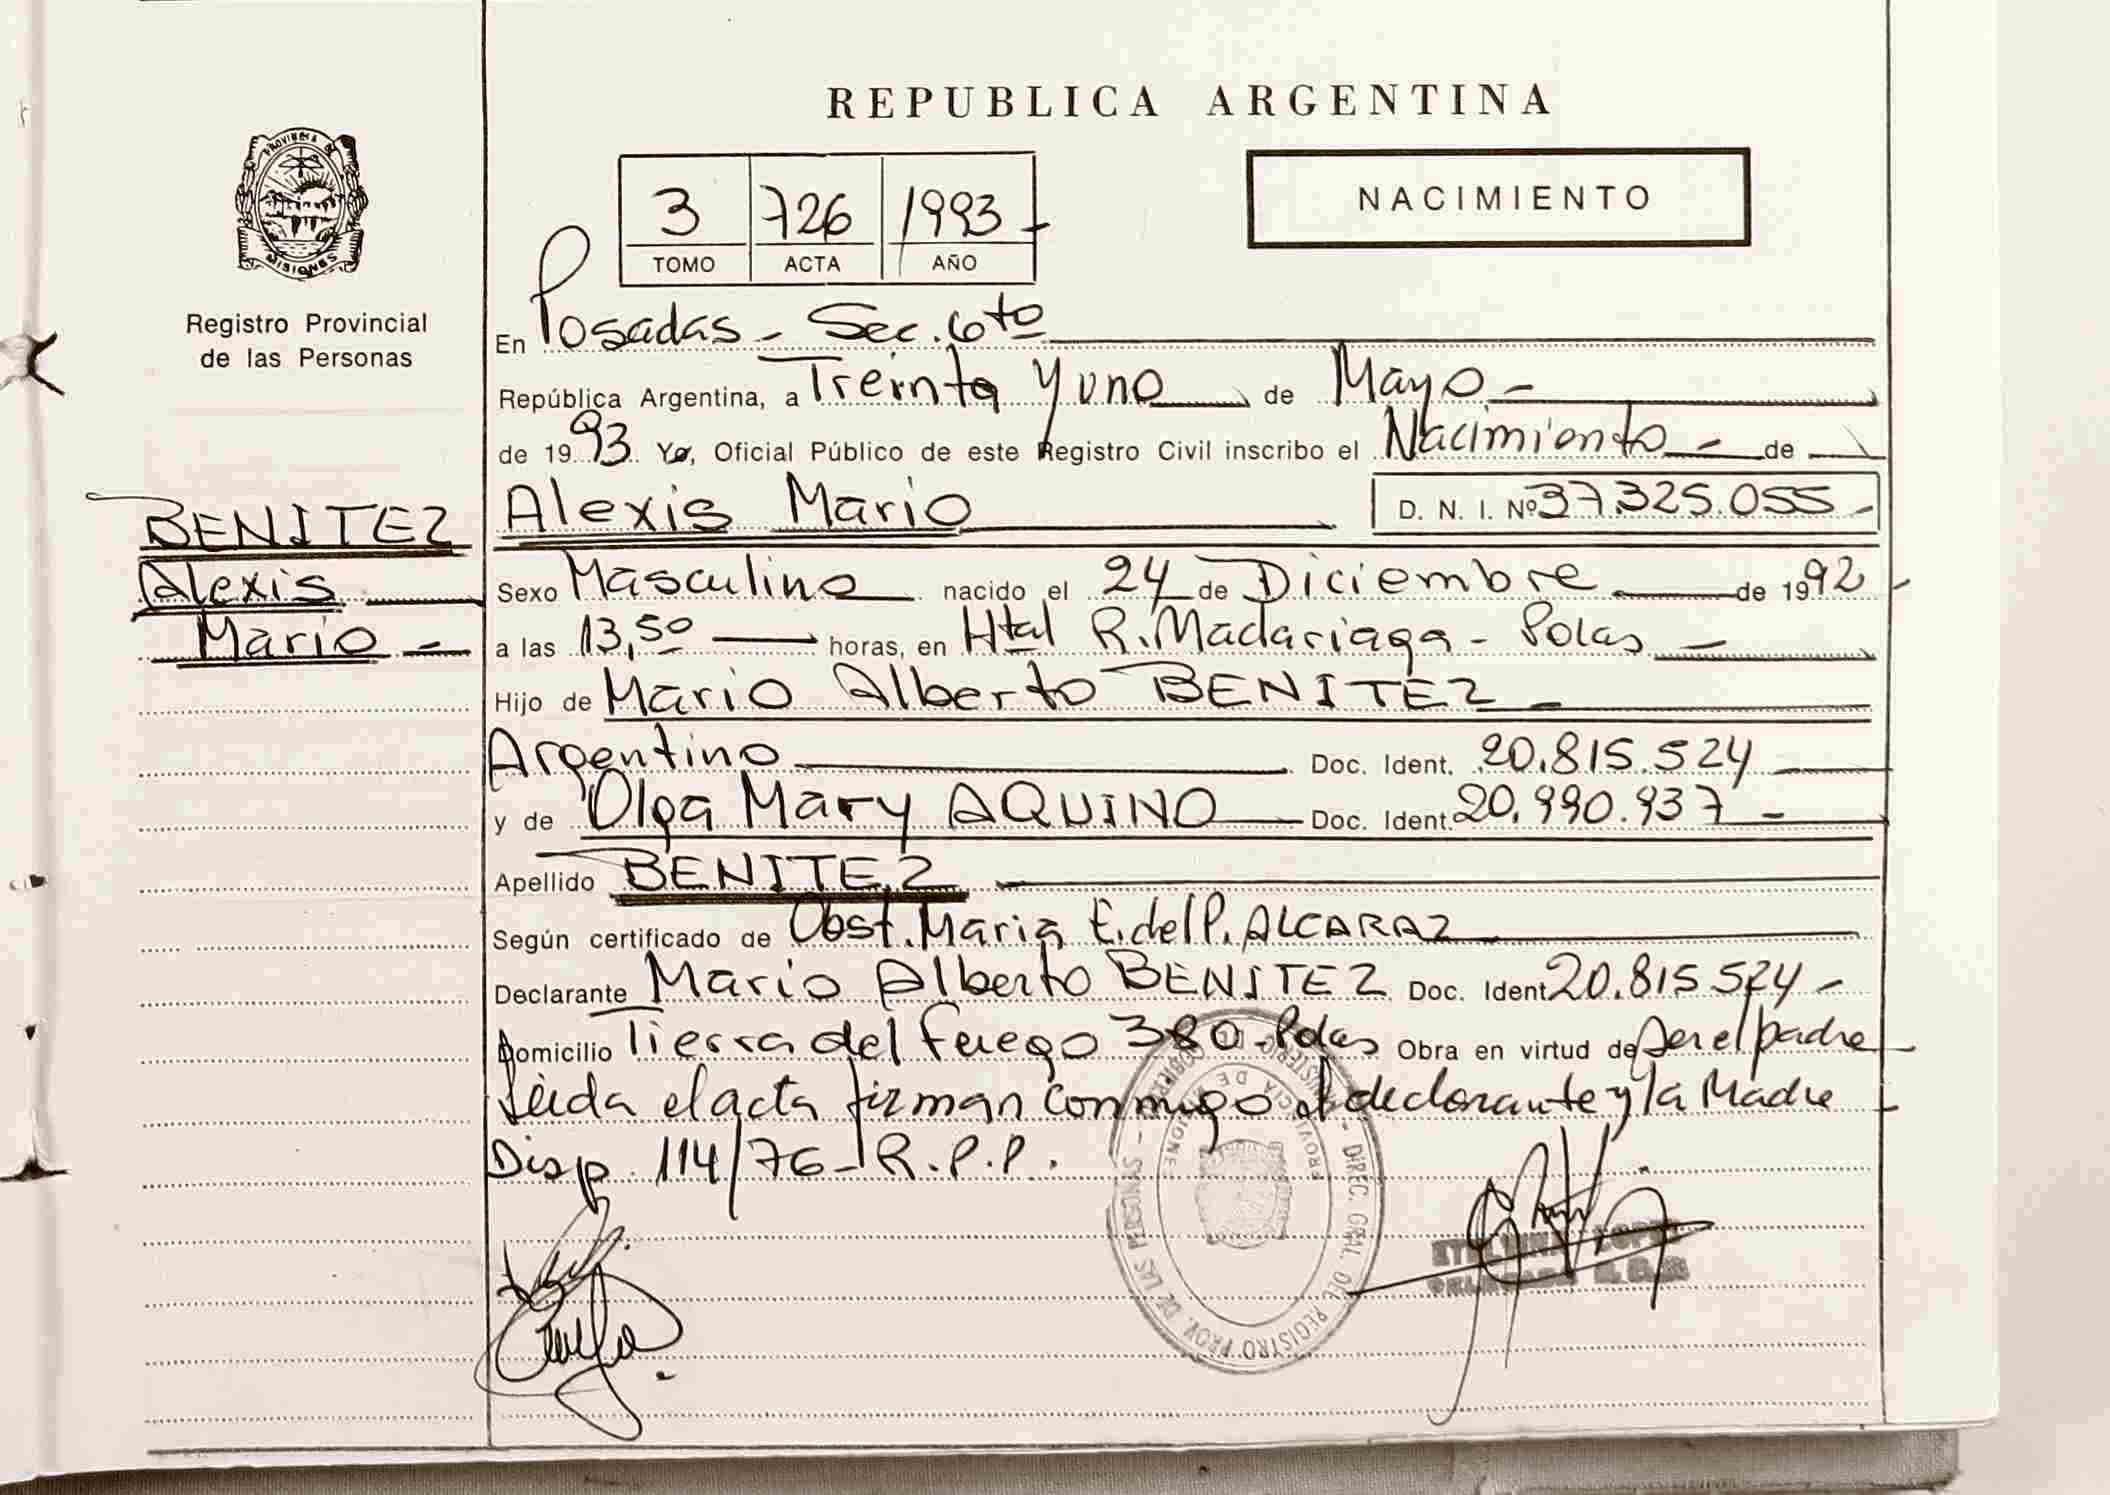 REPUBLICA ARGENTINA
PROVINCIA DE
MISIONES
Registro Provincial
de las Personas
3 726 1993
TOMO ACTA AÑO
NACIMIENTO
En Posadas - Sec. 6to
República Argentina, a Treinta y uno de Mayo -
de 1993. Yo, Oficial Público de este Registro Civil inscribo el Nacimiento - de
BENITEZ
Alexis
Mario -
Alexis Mario D. N. I. Nº 37.325.055 -
Sexo Masculino nacido el 24 de Diciembre de 1992
a las 13,50 horas, en Htal R. Madariaga - Pdas -
Hijo de Mario Alberto BENITEZ -
Argentino Doc. Ident. 20.815.524
y de Olga Mary AQUINO Doc. Ident. 20.990.937 -
Apellido BENITEZ
Según certificado de Obst. Maria E. del P. ALCARAZ
Declarante Mario Alberto BENITEZ Doc. Ident 20.815 524 -
Domicilio Tierra del Fuego 380 - Pdas Obra en virtud de ser el padre
Leida el acta firman conmigo el declarante y la Madre
Disp. 114/76 - R.P.P.
MINISTERIO DE GOBIERNO - DIREC. GRAL. DEL REGISTRO PROV. DE LAS PERSONAS -
PROVINCIA DE MISIONES
LOPEZ